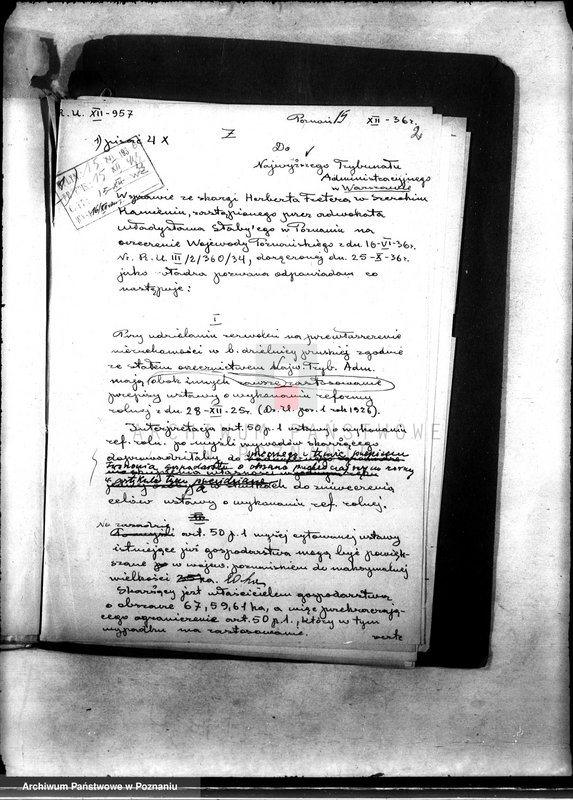 R. U. XII-957
Poznań 15 XII-36 r.
2
1) pisać 4 X
Do
Najwyższego Trybunału
Administracyjnego
w Warszawie
W sprawie ze skargi Herberta Fretera w Szerokim
Kamieniu, zastąpionego przez adwokata
Władysława Stały'ego w Poznaniu na
orzeczenie Wojewody Poznańskiego z dn. 16-VI-36r.
Nr. R. U. III/2/360/34, doręczonej dn. 25-X-36r.
jako władza pozwana odpowiadam co
następuje:
I
Przy udzielaniu zezwoleń na przewłaszczenie
nieruchomości w b. dzielnicy pruskiej zgodnie
ze stałem orzecznictwem Najw. Tryb. Adm.
mają obok innych zawsze zastosowanie
przepisy ustawy o wykonaniu reformy
rolnej z dn. 28-XII-25r. (Dz. U. poz. 1 rok 1926).
Interpretacja art. 50 p. 1 ustawy o wykonaniu
ref. roln. po myśli wywodów skarżącego
doprowadziłaby do
do zniweczenia
celów ustawy o wykonaniu ref. rolnej.
II
Na zasadzie
art. 50 p. 1 wyżej cytowanej ustawy
istniejące już gospodarstwa mogą być powięk-
szane w wojew. poznańskiem do maksymalnej
wielkości
Skarżący jest właścicielem gospodarstwa
o obszarze 67,59,61 ha, a więc przekraczają-
cego ograniczenie art. 50 p. 1., który w tym
wypadku ma zastosowanie.
verte
ARCHIWUM PAŃSTWOWE
Archiwum Państwowe w Poznaniu